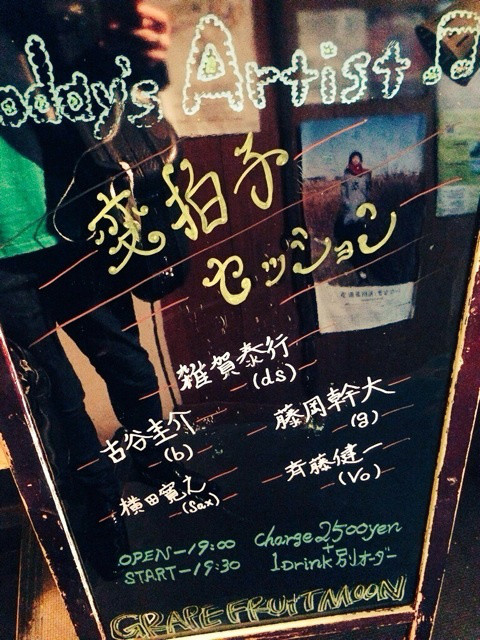 oday's Artist
変拍子
セッション
雑賀泰行
(ds)
古谷圭介
(b)
藤岡幹大
(g)
横田寛之
(Sax)
斉藤健一
(Vo)
OPEN-19:00
START-19:30
charge2500yen
+
1Drink別オーダー
GRAPEFRUITMOON